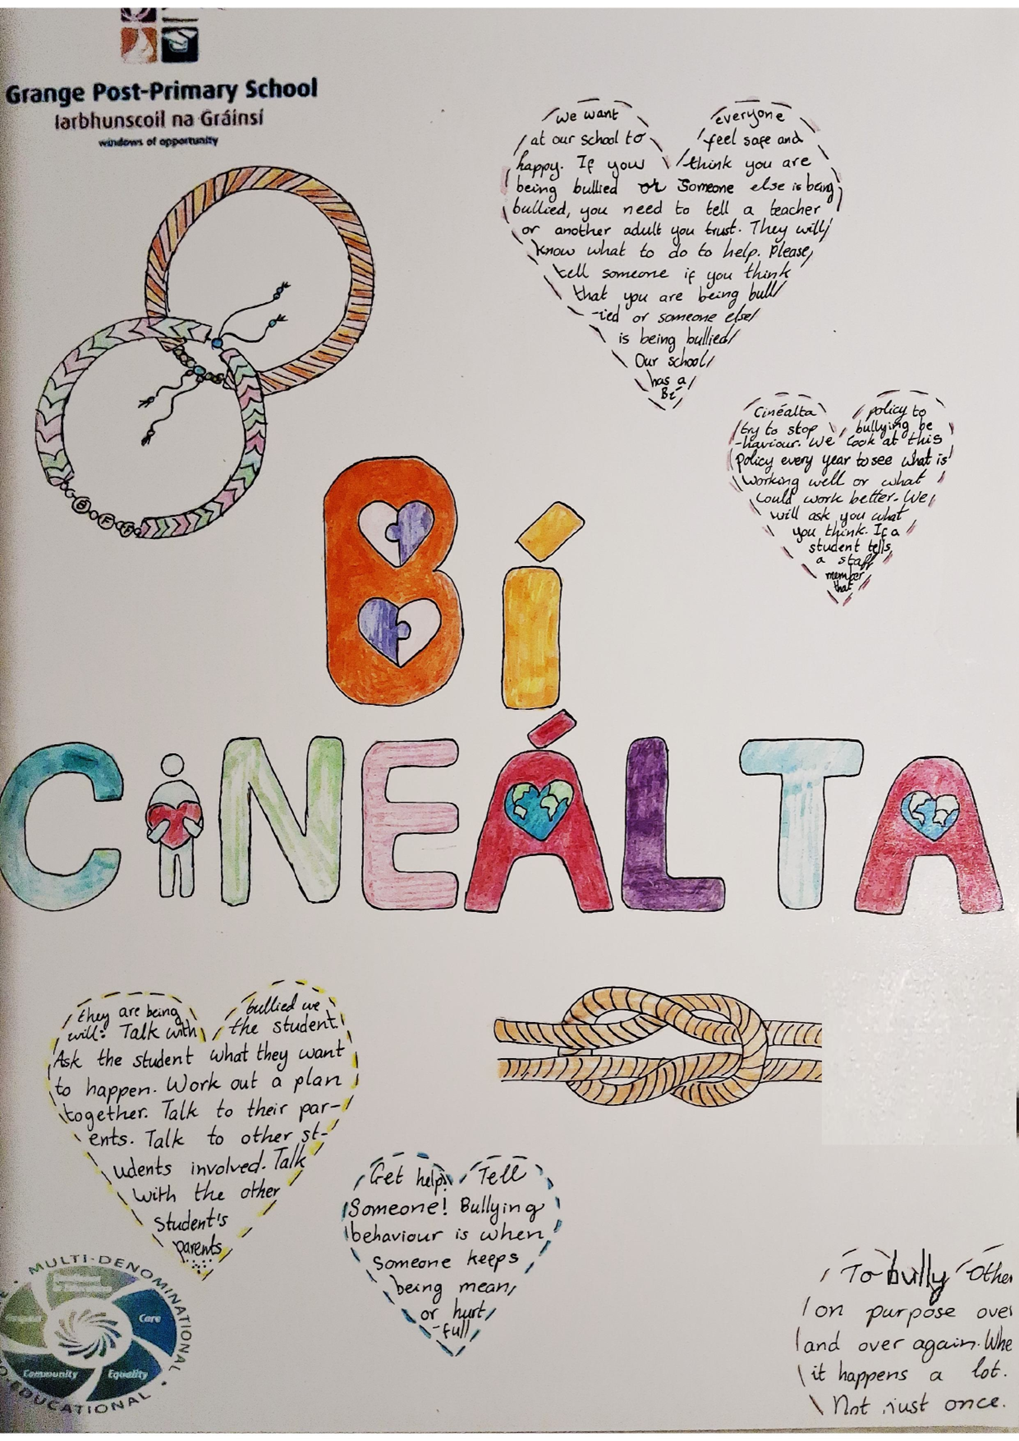 Grange Post-Primary School
Iarbhunscoil na Gráinsí
windows of opportunity
we want everyone
at our school to feel safe and
happy. If you think you are
being bullied or Someone else is being
bullied, you need to tell a teacher
or another adult you trust. They will
know what to do to help. Please,
tell someone if you think
that you are being bull
-ied or someone else
is being bullied
Our school
has a
Bí
Cinéalta policy to
try to stop bullying be
-haviour. We look at this
Policy every year to see what is
working well or what
could work better. We
will ask you what
you think. If a
student tells
a staff
member
that
BFF
Bí
CiNEÁLTA
they are being bullied we
will: Talk with the student.
Ask the student what they want
to happen. Work out a plan
together. Talk to their par-
ents. Talk to other st-
udents involved. Talk
with the other
student's
parents
Get help! Tell
Someone! Bullying
behaviour is when
someone keeps
being mean,
or hurt
-full
To bully Othe
on purpose over
and over again. Whe
it happens a lot.
Not just once.
MULTI-DENOMINATIONAL
Respect
Care
Community
Equality
CO-EDUCATIONAL